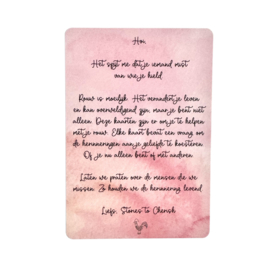 Hoi,
Het spijt me dat je iemand mist
van wie je hield.
Rouw is moeilijk. Het verandert je leven
en kan overweldigend zijn, maar je bent niet
alleen. Deze kaarten zijn er om je te helpen
met je rouw. Elke kaart bevat een vraag om
de herinneringen aan je geliefde te koesteren.
Of je nu alleen bent of met anderen.
Laten we praten over de mensen die we
missen. Zo houden we de herinnering levend.
Liefs, Stories to Cherish